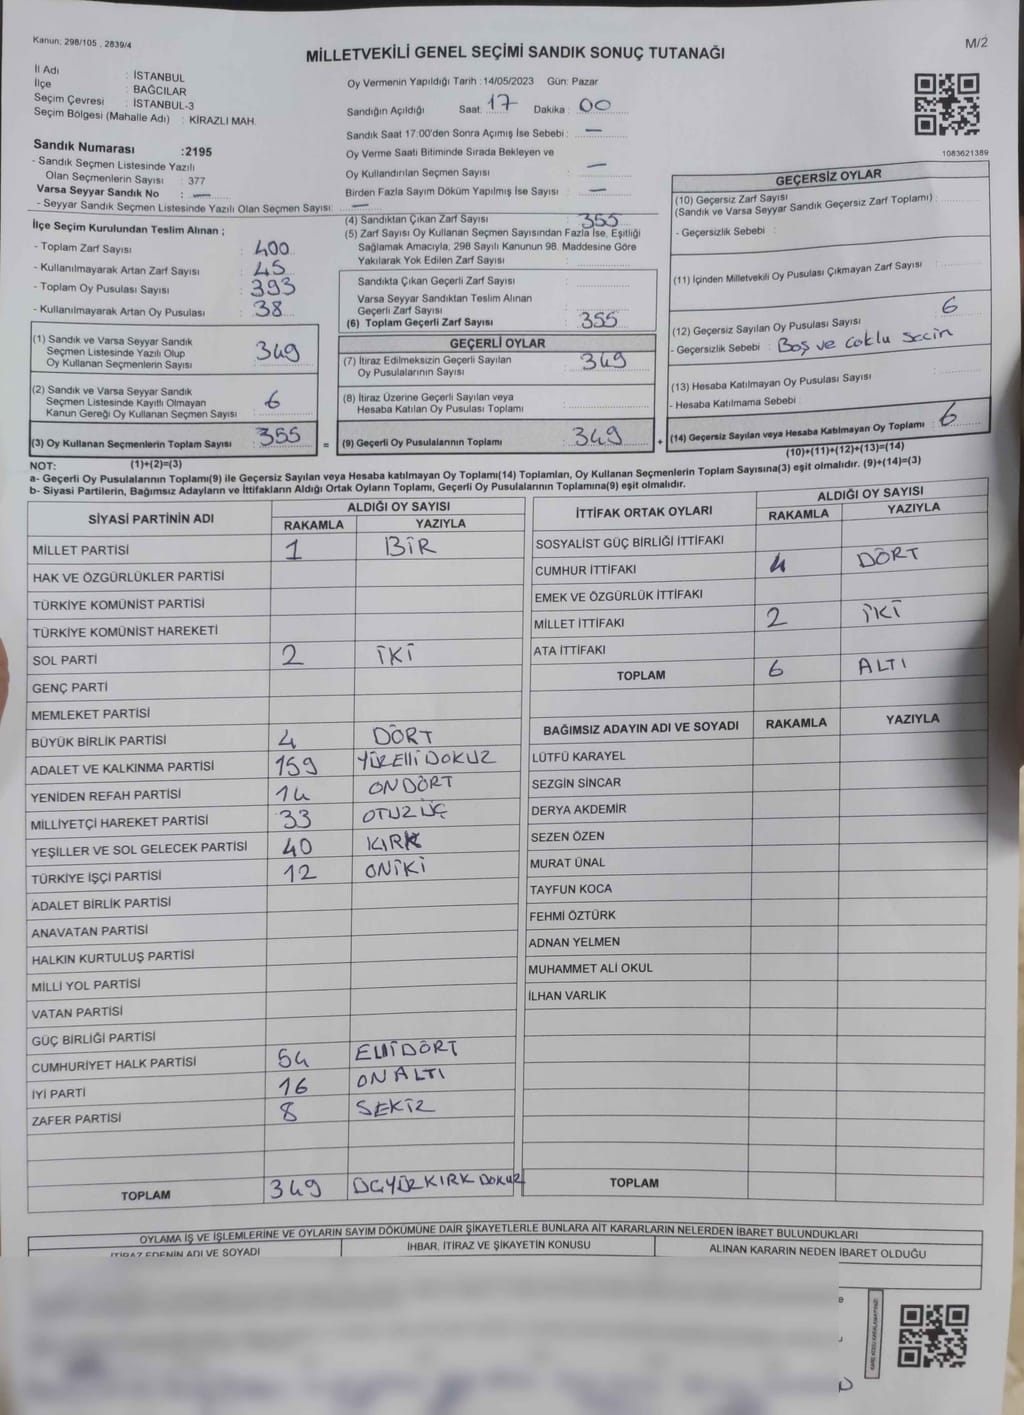 Kanun: 298/105 , 2839/4
M/2
MİLLETVEKİLİ GENEL SEÇİMİ SANDIK SONUÇ TUTANAĞI
İl Adı : İSTANBUL
İlçe : BAĞCILAR
Seçim Çevresi : İSTANBUL-3
Seçim Bölgesi (Mahalle Adı) : KİRAZLI MAH.
Sandık Numarası :2195
- Sandık Seçmen Listesinde Yazılı
Olan Seçmenlerin Sayısı : 377
Varsa Seyyar Sandık No : —
- Seyyar Sandık Seçmen Listesinde Yazılı Olan Seçmen Sayısı: —
İlçe Seçim Kurulundan Teslim Alınan ;
- Toplam Zarf Sayısı : 400
- Kullanılmayarak Artan Zarf Sayısı : 45
- Toplam Oy Pusulası Sayısı : 393
- Kullanılmayarak Artan Oy Pusulası : 38
(1) Sandık ve Varsa Seyyar Sandık
Seçmen Listesinde Yazılı Olup
Oy Kullanan Seçmenlerin Sayısı : 349
(2) Sandık ve Varsa Seyyar Sandık
Seçmen Listesinde Kayıtlı Olmayan
Kanun Gereği Oy Kullanan Seçmen Sayısı : 6
(3) Oy Kullanan Seçmenlerin Toplam Sayısı : 355
Oy Vermenin Yapıldığı Tarih : 14/05/2023 Gün: Pazar
Sandığın Açıldığı Saat: 17 Dakika : 00
Sandık Saat 17:00'den Sonra Açımış İse Sebebi : —
Oy Verme Saati Bitiminde Sırada Bekleyen ve
Oy Kullandırılan Seçmen Sayısı : —
Birden Fazla Sayım Döküm Yapılmış İse Sayısı : —
(4) Sandıktan Çıkan Zarf Sayısı : 355
(5) Zarf Sayısı Oy Kullanan Seçmen Sayısından Fazla İse, Eşitliği
Sağlamak Amacıyla; 298 Sayılı Kanunun 98. Maddesine Göre
Yakılarak Yok Edilen Zarf Sayısı :
Sandıkta Çıkan Geçerli Zarf Sayısı :
Varsa Seyyar Sandıktan Teslim Alınan
Geçerli Zarf Sayısı :
(6) Toplam Geçerli Zarf Sayısı : 355
GEÇERLİ OYLAR
(7) İtiraz Edilmeksizin Geçerli Sayılan
Oy Pusulalarının Sayısı : 349
(8) İtiraz Üzerine Geçerli Sayılan veya
Hesaba Katılan Oy Pusulası Toplamı :
= (9) Geçerli Oy Pusulalarının Toplamı : 349
1083621389
GEÇERSİZ OYLAR
(10) Geçersiz Zarf Sayısı
(Sandık ve Varsa Seyyar Sandık Geçersiz Zarf Toplamı) :
- Geçersizlik Sebebi :
(11) İçinden Milletvekili Oy Pusulası Çıkmayan Zarf Sayısı :
(12) Geçersiz Sayılan Oy Pusulası Sayısı : 6
- Geçersizlik Sebebi : Boş ve çoklu seçin
(13) Hesaba Katılmayan Oy Pusulası Sayısı :
- Hesaba Katılmama Sebebi :
+ (14) Geçersiz Sayılan veya Hesaba Katılmayan Oy Toplamı : 6
(10)+(11)+(12)+(13)=(14)
NOT: (1)+(2)=(3)
a- Geçerli Oy Pusulalarının Toplamı(9) ile Geçersiz Sayılan veya Hesaba katılmayan Oy Toplamı(14) Toplamları, Oy Kullanan Seçmenlerin Toplam Sayısına(3) eşit olmalıdır. (9)+(14)=(3)
b- Siyasi Partilerin, Bağımsız Adayların ve İttifakların Aldığı Ortak Oyların Toplamı, Geçerli Oy Pusulalarının Toplamına(9) eşit olmalıdır.
SİYASİ PARTİNİN ADI ALDIĞI OY SAYISI
RAKAMLA YAZIYLA
MİLLET PARTİSİ 1 BİR
HAK VE ÖZGÜRLÜKLER PARTİSİ
TÜRKİYE KOMÜNİST PARTİSİ
TÜRKİYE KOMÜNİST HAREKETİ
SOL PARTİ 2 İKİ
GENÇ PARTİ
MEMLEKET PARTİSİ
BÜYÜK BİRLİK PARTİSİ 4 DÖRT
ADALET VE KALKINMA PARTİSİ 159 YÜZElli DOKUZ
YENİDEN REFAH PARTİSİ 14 ONDÖRT
MİLLİYETÇİ HAREKET PARTİSİ 33 OTUZ ÜÇ
YEŞİLLER VE SOL GELECEK PARTİSİ 40 KIRK
TÜRKİYE İŞÇİ PARTİSİ 12 ONİKİ
ADALET BİRLİK PARTİSİ
ANAVATAN PARTİSİ
HALKIN KURTULUŞ PARTİSİ
MİLLİ YOL PARTİSİ
VATAN PARTİSİ
GÜÇ BİRLİĞİ PARTİSİ
CUMHURİYET HALK PARTİSİ 54 ElliDÖRT
İYİ PARTİ 16 ONALTI
ZAFER PARTİSİ 8 SEKİZ
TOPLAM 349 ÜÇYÜZKIRK DOKUZ
İTTİFAK ORTAK OYLARI ALDIĞI OY SAYISI
RAKAMLA YAZIYLA
SOSYALİST GÜÇ BİRLİĞİ İTTİFAKI
CUMHUR İTTİFAKI 4 DÖRT
EMEK VE ÖZGÜRLÜK İTTİFAKI
MİLLET İTTİFAKI 2 İKİ
ATA İTTİFAKI
TOPLAM 6 ALTI
BAĞIMSIZ ADAYIN ADI VE SOYADI RAKAMLA YAZIYLA
LÜTFÜ KARAYEL
SEZGİN SİNCAR
DERYA AKDEMİR
SEZEN ÖZEN
MURAT ÜNAL
TAYFUN KOCA
FEHMİ ÖZTÜRK
ADNAN YELMEN
MUHAMMET ALİ OKUL
İLHAN VARLIK
TOPLAM
OYLAMA İŞ VE İŞLEMLERİNE VE OYLARIN SAYIM DÖKÜMÜNE DAİR ŞİKAYETLERLE BUNLARA AİT KARARLARIN NELERDEN İBARET BULUNDUKLARI
İTİRAZ EDENİN ADI VE SOYADI İHBAR, İTİRAZ VE ŞİKAYETİN KONUSU ALINAN KARARIN NEDEN İBARET OLDUĞU